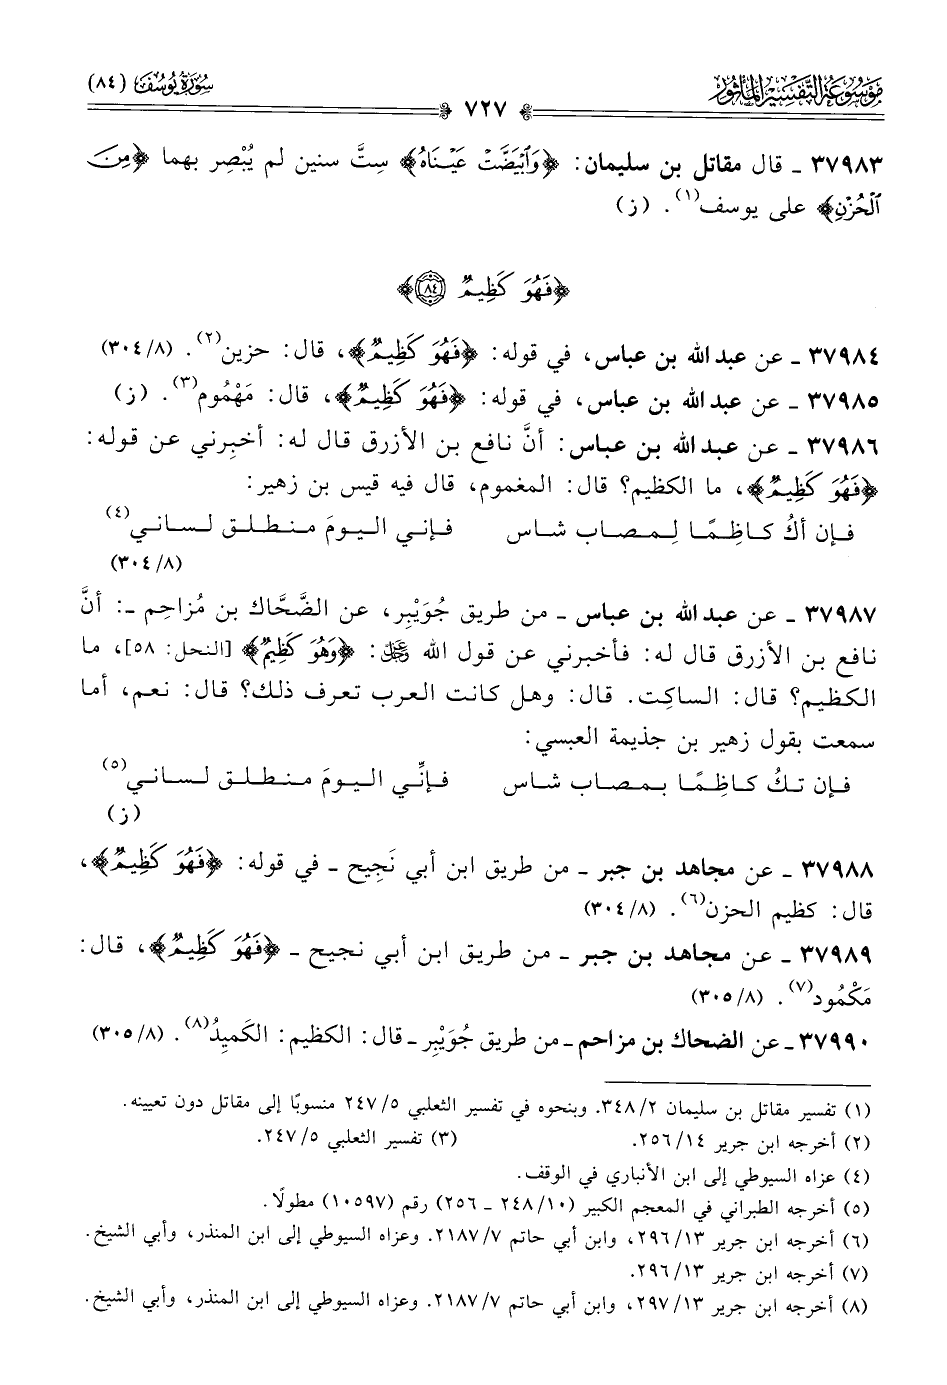 مَوْسُوعَة التَّفْسِير المَأْثُور
سُورَة يُوسُف (٨٤)
٧٢٧
٣٧٩٨٣ ـ قال مقاتل بن سليمان: ﴿وَٱبۡيَضَّتۡ عَيۡنَاهُ﴾ سِتَّ سنين لم يُبْصِر بهما ﴿مِنَ
ٱلۡحُزۡنِ﴾ على يوسف(١). (ز)
﴿فَهُوَ كَظِيمٞ ٨٤﴾
٣٧٩٨٤ ـ عن عبد الله بن عباس، في قوله: ﴿فَهُوَ كَظِيمٞ﴾، قال: حزين(٢). (٣٠٤/٨)
٣٧٩٨٥ ـ عن عبد الله بن عباس، في قوله: ﴿فَهُوَ كَظِيمٞ﴾، قال: مَهْمُوم(٣). (ز)
٣٧٩٨٦ ـ عن عبد الله بن عباس: أنَّ نافع بن الأزرق قال له: أخبِرني عن قوله:
﴿فَهُوَ كَظِيمٞ﴾، ما الكظيم؟ قال: المغموم، قال فيه قيس بن زهير:
فـإن أكُ كـاظِـمًـا لِـمـصـاب شـاس فـإنـي الـيـومَ مـنـطـلـق لـسـانـي(٤)
(٣٠٤/٨)
٣٧٩٨٧ ـ عن عبد الله بن عباس ـ من طريق جُوَيْبِر، عن الضَّحَّاك بن مُزاحِم ـ: أنَّ
نافع بن الأزرق قال له: فأخبرني عن قول الله ﷿: ﴿وَهُوَ كَظِيمٞ﴾ [النحل: ٥٨]، ما
الكظيم؟ قال: الساكِت. قال: وهل كانت العرب تعرف ذلك؟ قال: نعم، أما
سمعت بقول زهير بن جذيمة العبسي:
فـإن تـكُ كـاظِـمًـا بـمـصـاب شـاس فـإنِّـي الـيـومَ مـنـطـلـق لـسـانـي(٥)
(ز)
٣٧٩٨٨ ـ عن مجاهد بن جبر ـ من طريق ابن أبي نَجِيح ـ في قوله: ﴿فَهُوَ كَظِيمٞ﴾،
قال: كظيم الحزن(٦). (٣٠٤/٨)
٣٧٩٨٩ ـ عن مجاهد بن جبر ـ من طريق ابن أبي نجيح ـ ﴿فَهُوَ كَظِيمٞ﴾، قال:
مَكْمُود(٧). (٣٠٥/٨)
٣٧٩٩٠ ـ عن الضحاك بن مزاحم ـ من طريق جُوَيْبِر ـ قال: الكظيم: الكَمِيدُ(٨). (٣٠٥/٨)
(١) تفسير مقاتل بن سليمان ٣٤٨/٢. وبنحوه في تفسير الثعلبي ٢٤٧/٥ منسوبًا إلى مقاتل دون تعيينه.
(٢) أخرجه ابن جرير ٢٥٦/١٤. (٣) تفسير الثعلبي ٢٤٧/٥.
(٤) عزاه السيوطي إلى ابن الأنباري في الوقف.
(٥) أخرجه الطبراني في المعجم الكبير (٢٤٨/١٠ ـ ٢٥٦) رقم (١٠٥٩٧) مطولًا.
(٦) أخرجه ابن جرير ٢٩٦/١٣، وابن أبي حاتم ٢١٨٧/٧. وعزاه السيوطي إلى ابن المنذر، وأبي الشيخ.
(٧) أخرجه ابن جرير ٢٩٦/١٣.
(٨) أخرجه ابن جرير ٢٩٧/١٣، وابن أبي حاتم ٢١٨٧/٧. وعزاه السيوطي إلى ابن المنذر، وأبي الشيخ.